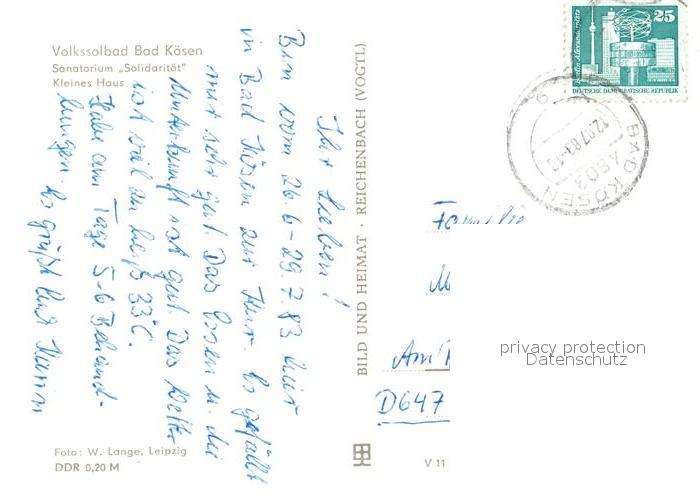 Volkssolbad Bad Kösen
Sanatorium „Solidarität"
Kleines Haus
Ihr Lieben!
Bin vom 26.6-29.7.83 hier
in Bad Kösen zur Kur. Es gefällt
mir sehr gut. Das Essen u. die
Unterkunft ist gut. Das Wetter
ist viel zu heiß 33°C.
Habe am Tage 5-6 Behand-
lungen. Es grüßt Euch
Foto: W. Lange, Leipzig
DDR 0,20 M
BILD UND HEIMAT · REICHENBACH (VOGTL)
V 11
25
Berlin, Alexanderplatz
DEUTSCHE DEMOKRATISCHE REPUBLIK
BAD KÖSEN
4803
12.07.83
Familie
M
Am
D647
privacy protection
Datenschutz